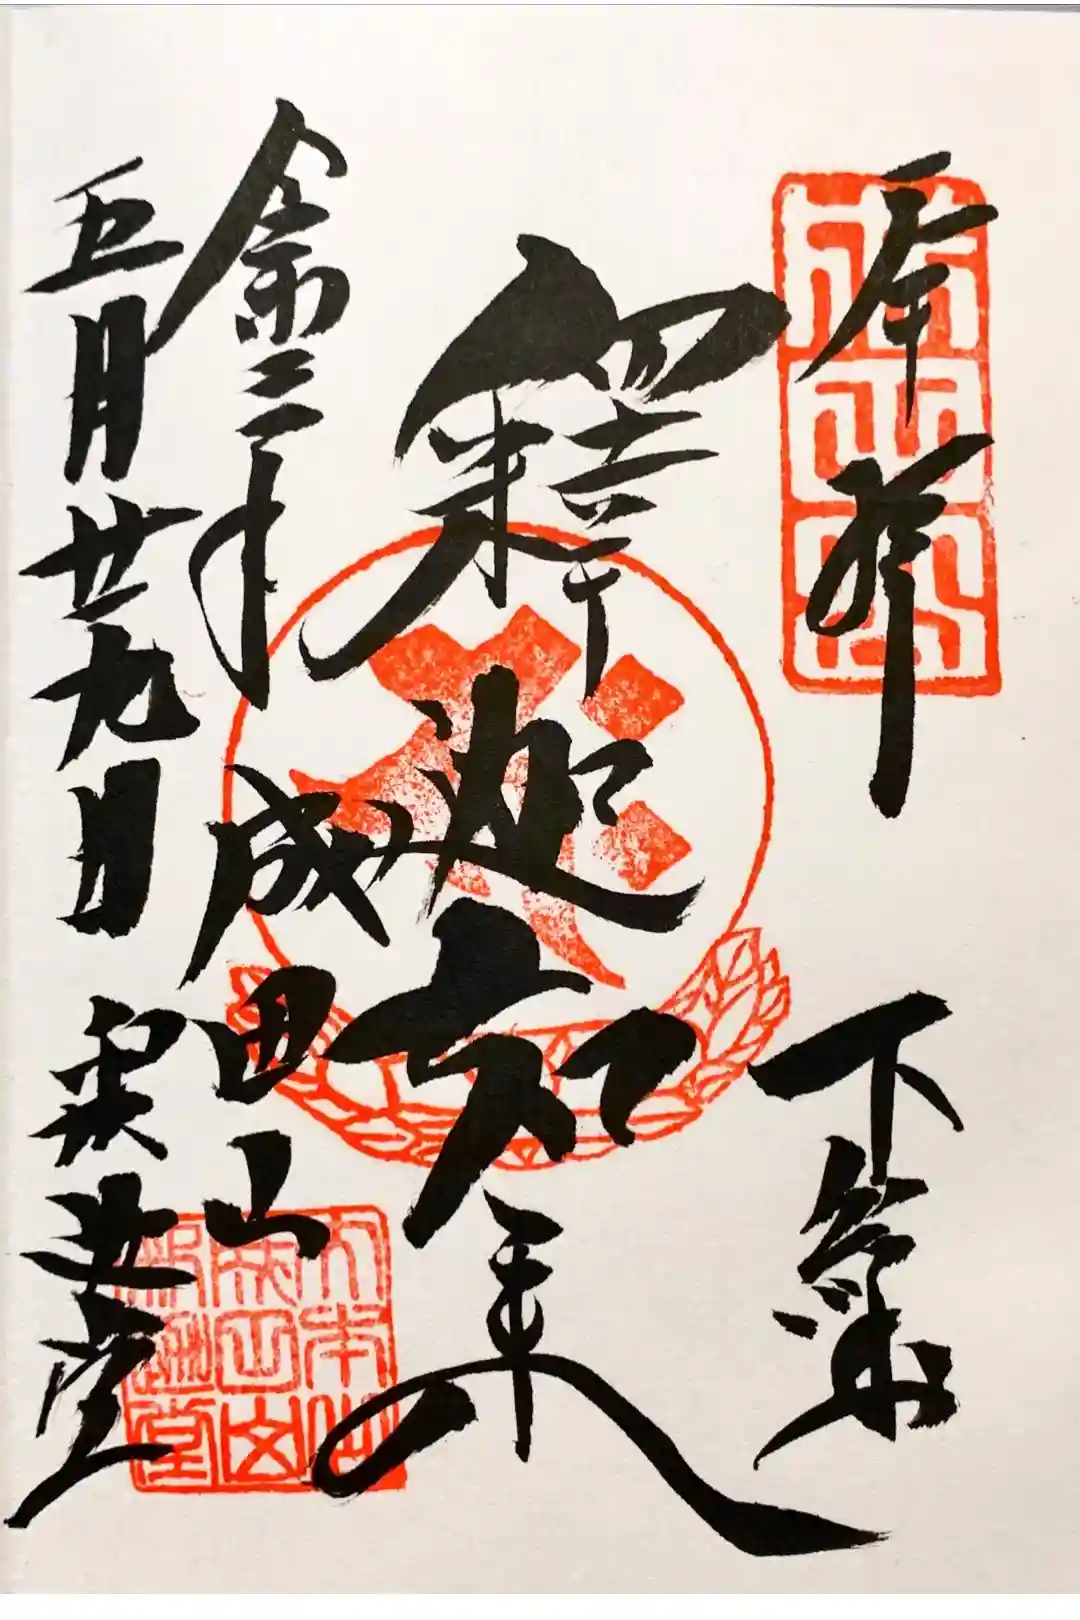 奉拝
下総
釋迦如来
令和二年
成田山
五月廿九日
釈迦堂
成田山